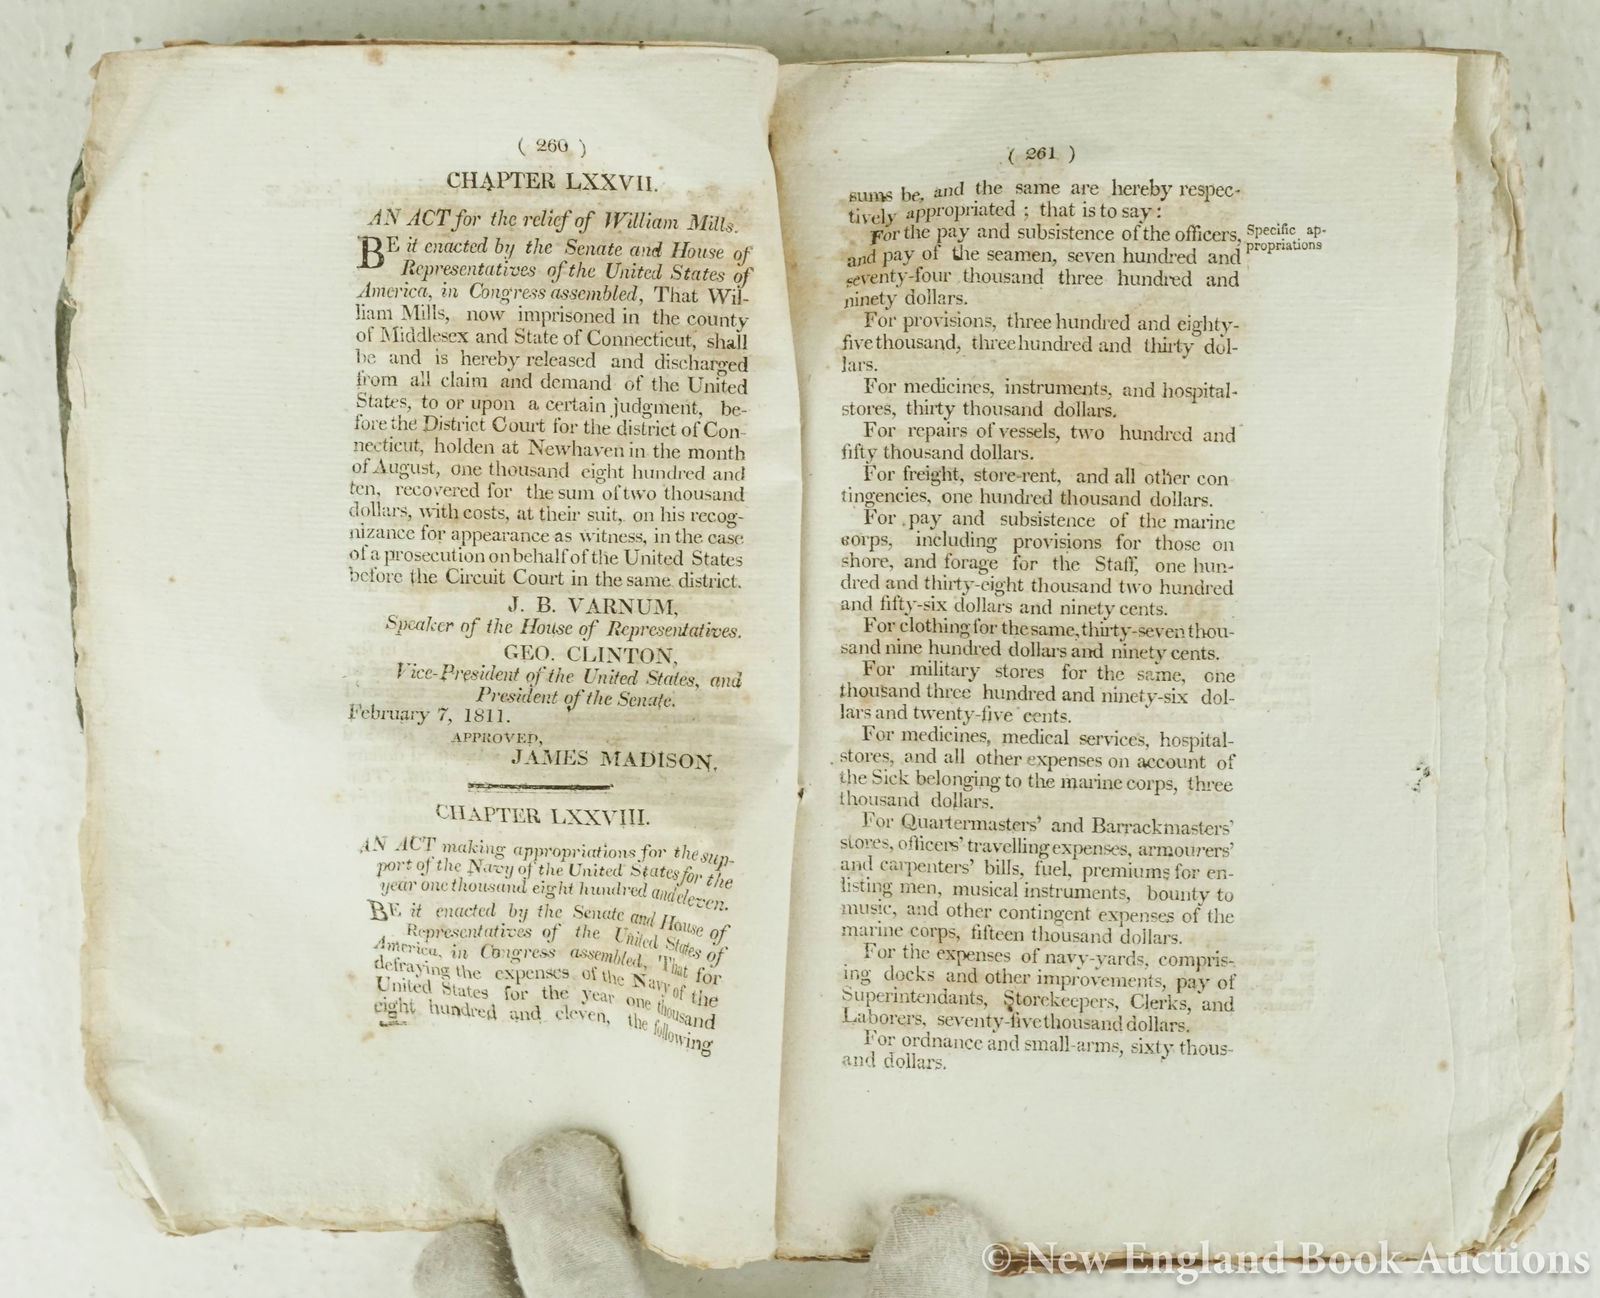 ( 260 )
CHAPTER LXXVII.
AN ACT for the relief of William Mills.
BE it enacted by the Senate and House of
Representatives of the United States of
America, in Congress assembled, That Wil-
liam Mills, now imprisoned in the county
of Middlesex and State of Connecticut, shall
be and is hereby released and discharged
from all claim and demand of the United
States, to or upon a certain judgment, be-
fore the District Court for the district of Con-
necticut, holden at Newhaven in the month
of August, one thousand eight hundred and
ten, recovered for the sum of two thousand
dollars, with costs, at their suit, on his recog-
nizance for appearance as witness, in the case
of a prosecution on behalf of the United States
before the Circuit Court in the same district.
J. B. VARNUM,
Speaker of the House of Representatives.
GEO. CLINTON,
Vice-President of the United States, and
President of the Senate.
February 7, 1811.
APPROVED,
JAMES MADISON.
CHAPTER LXXVIII.
AN ACT making appropriations for the sup-
port of the Navy of the United States for the
year one thousand eight hundred and eleven.
BE it enacted by the Senate and House of
Representatives of the United States of
America, in Congress assembled, That for
defraying the expenses of the Navy of the
United States for the year one thousand
eight hundred and eleven, the following
( 261 )
sums be, and the same are hereby respec-
tively appropriated ; that is to say :
For the pay and subsistence of the officers,
and pay of the seamen, seven hundred and
seventy-four thousand three hundred and
ninety dollars.
Specific ap-
propriations
For provisions, three hundred and eighty-
five thousand, three hundred and thirty dol-
lars.
For medicines, instruments, and hospital-
stores, thirty thousand dollars.
For repairs of vessels, two hundred and
fifty thousand dollars.
For freight, store-rent, and all other con
tingencies, one hundred thousand dollars.
For pay and subsistence of the marine
corps, including provisions for those on
shore, and forage for the Staff, one hun-
dred and thirty-eight thousand two hundred
and fifty-six dollars and ninety cents.
For clothing for the same, thirty-seven thou-
sand nine hundred dollars and ninety cents.
For military stores for the same, one
thousand three hundred and ninety-six dol-
lars and twenty-five cents.
For medicines, medical services, hospital-
stores, and all other expenses on account of
the Sick belonging to the marine corps, three
thousand dollars.
For Quartermasters' and Barrackmasters'
stores, officers' travelling expenses, armourers'
and carpenters' bills, fuel, premiums for en-
listing men, musical instruments, bounty to
music, and other contingent expenses of the
marine corps, fifteen thousand dollars.
For the expenses of navy-yards, compris-
ing docks and other improvements, pay of
Superintendants, Storekeepers, Clerks, and
Laborers, seventy-five thousand dollars.
For ordnance and small-arms, sixty thous-
and dollars.
© New England Book Auctions